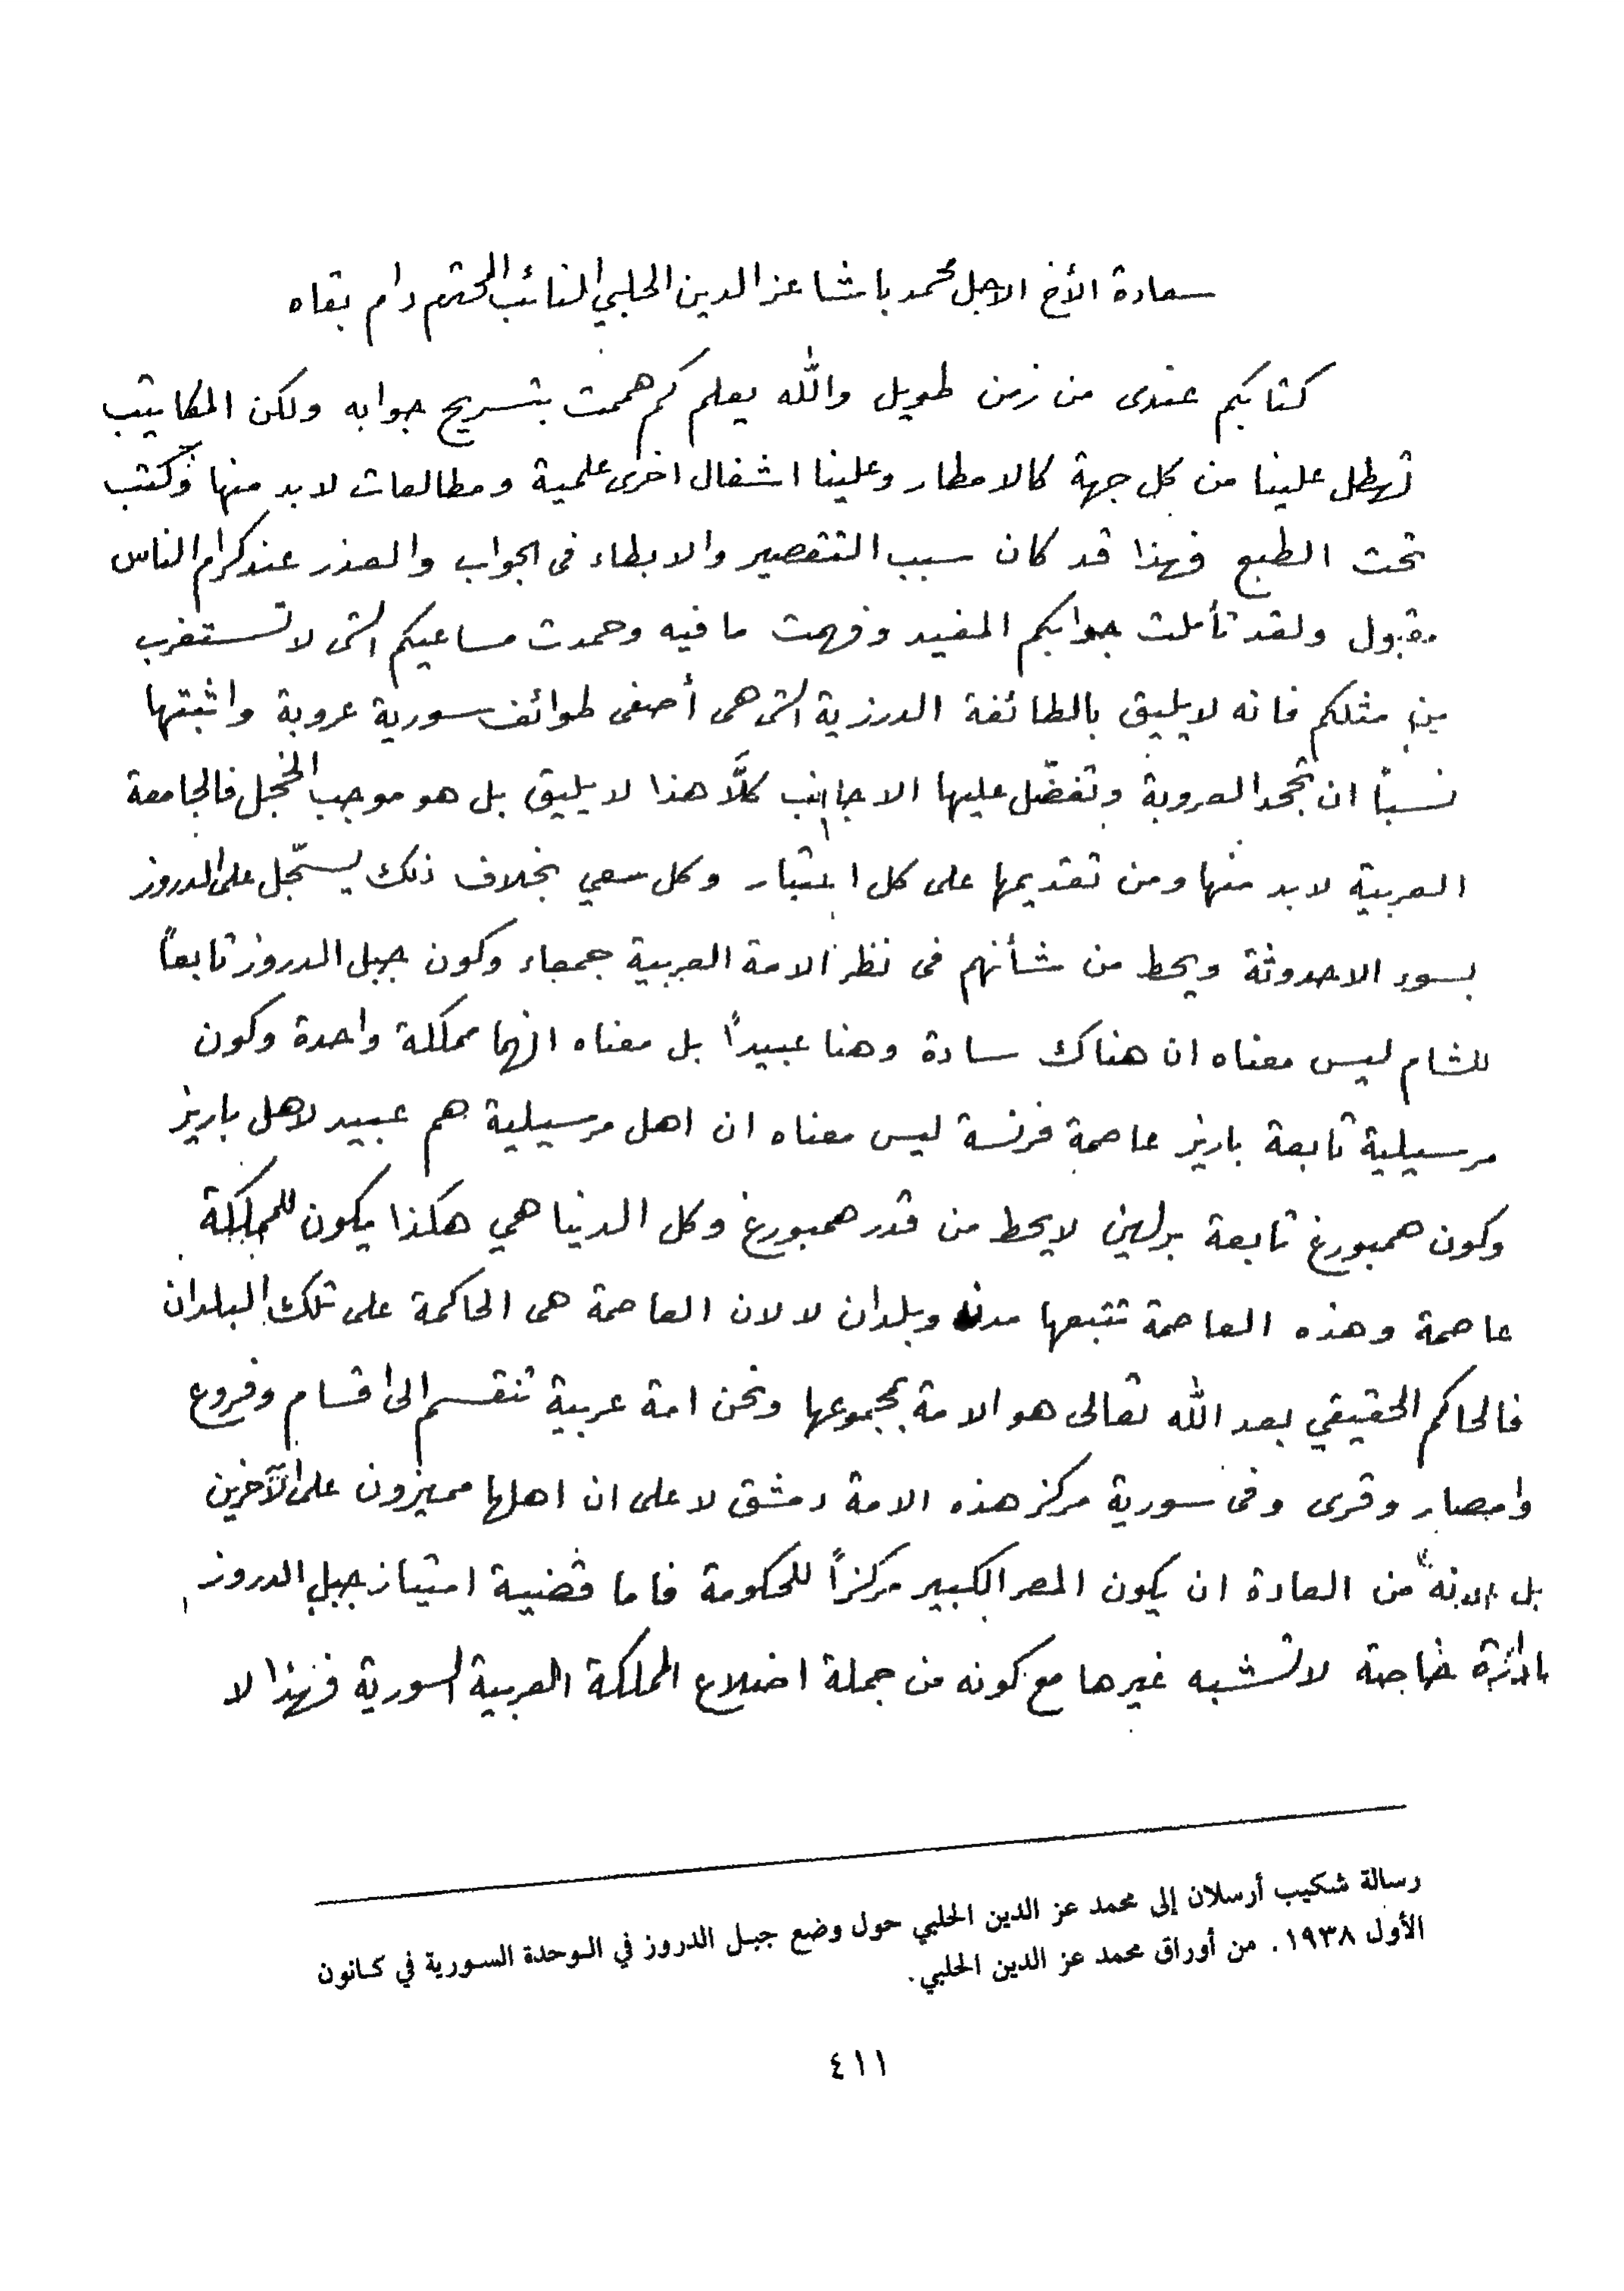 سعادة الأخ الاجل محمد باشا عز الدين الحلبي النائب المحترم دام بقاه
كتابكم عندى من زمن طويل والله يعلم كم هممت بتسريح جوابه ولكن المكاتيب
تهطل علينا من كل جهة كالامطار وعلينا اشغال اخرى علمية ومطالعات لا بد منها وكتب
تحت الطبع فهذا قد كان سبب التقصير والابطاء فى الجواب والعذر عند كرام الناس
مقبول ولقد تأملت جوابكم المفيد وفهمت ما فيه وحمدت مساعيكم التى لا تستغرب
من مثلكم فانه لا يليق بالطائفة الدرزية التى هى أصفى طوائف سورية عروبة واثبتها
نسباً ان تجحد العروبة وتفضّل عليها الاجانب كلَّا هذا لا يليق بل هو موجب الخجل فالجامعة
العربية لا بد منها ومن تقديمها على كل اعتبار وكل سعي بخلاف ذلك يسجّل على الدروز
بسوء الاحدوثة ويحط من شأنهم فى نظر الامة العربية جمعاء وكون جبل الدروز تابعاً
للشام ليس معناه ان هناك سادة وهنا عبيداً بل معناه انهما مملكة واحدة وكون
مرسيلية تابعة باريز عاصمة فرنسة ليس معناه ان اهل مرسيلية هم عبيد لاهل باريز
وكون همبورغ تابعة برلين لا يحط من قدر همبورغ وكل الدنيا هي هكذا يكون للمملكة
عاصمة وهذه العاصمة تتبعها مدن وبلدان لا لان العاصمة هى الحاكمة على تلك البلدان
فالحاكم الحقيقي بعد الله تعالى هو الامة بمجموعها ونحن امة عربية تنقسم الى اقسام وفروع
وامصار وقرى وفى سورية مركز هذه الامة دمشق لا على ان اهلها مميزون على الآخرين
بل لانه من العادة ان يكون المصر الكبير مركزاً للحكومة فاما قضية امتياز جبل الدروز
بادارة خاصة لا تشبه غيرها مع كونه من جملة اضلاع المملكة العربية السورية فهذا لا
رسالة شكيب أرسلان إلى محمد عز الدين الحلبي حول وضع جبل الدروز في الوحدة السورية في كانون
الأول ١٩٣٨. من أوراق محمد عز الدين الحلبي.
٤١١